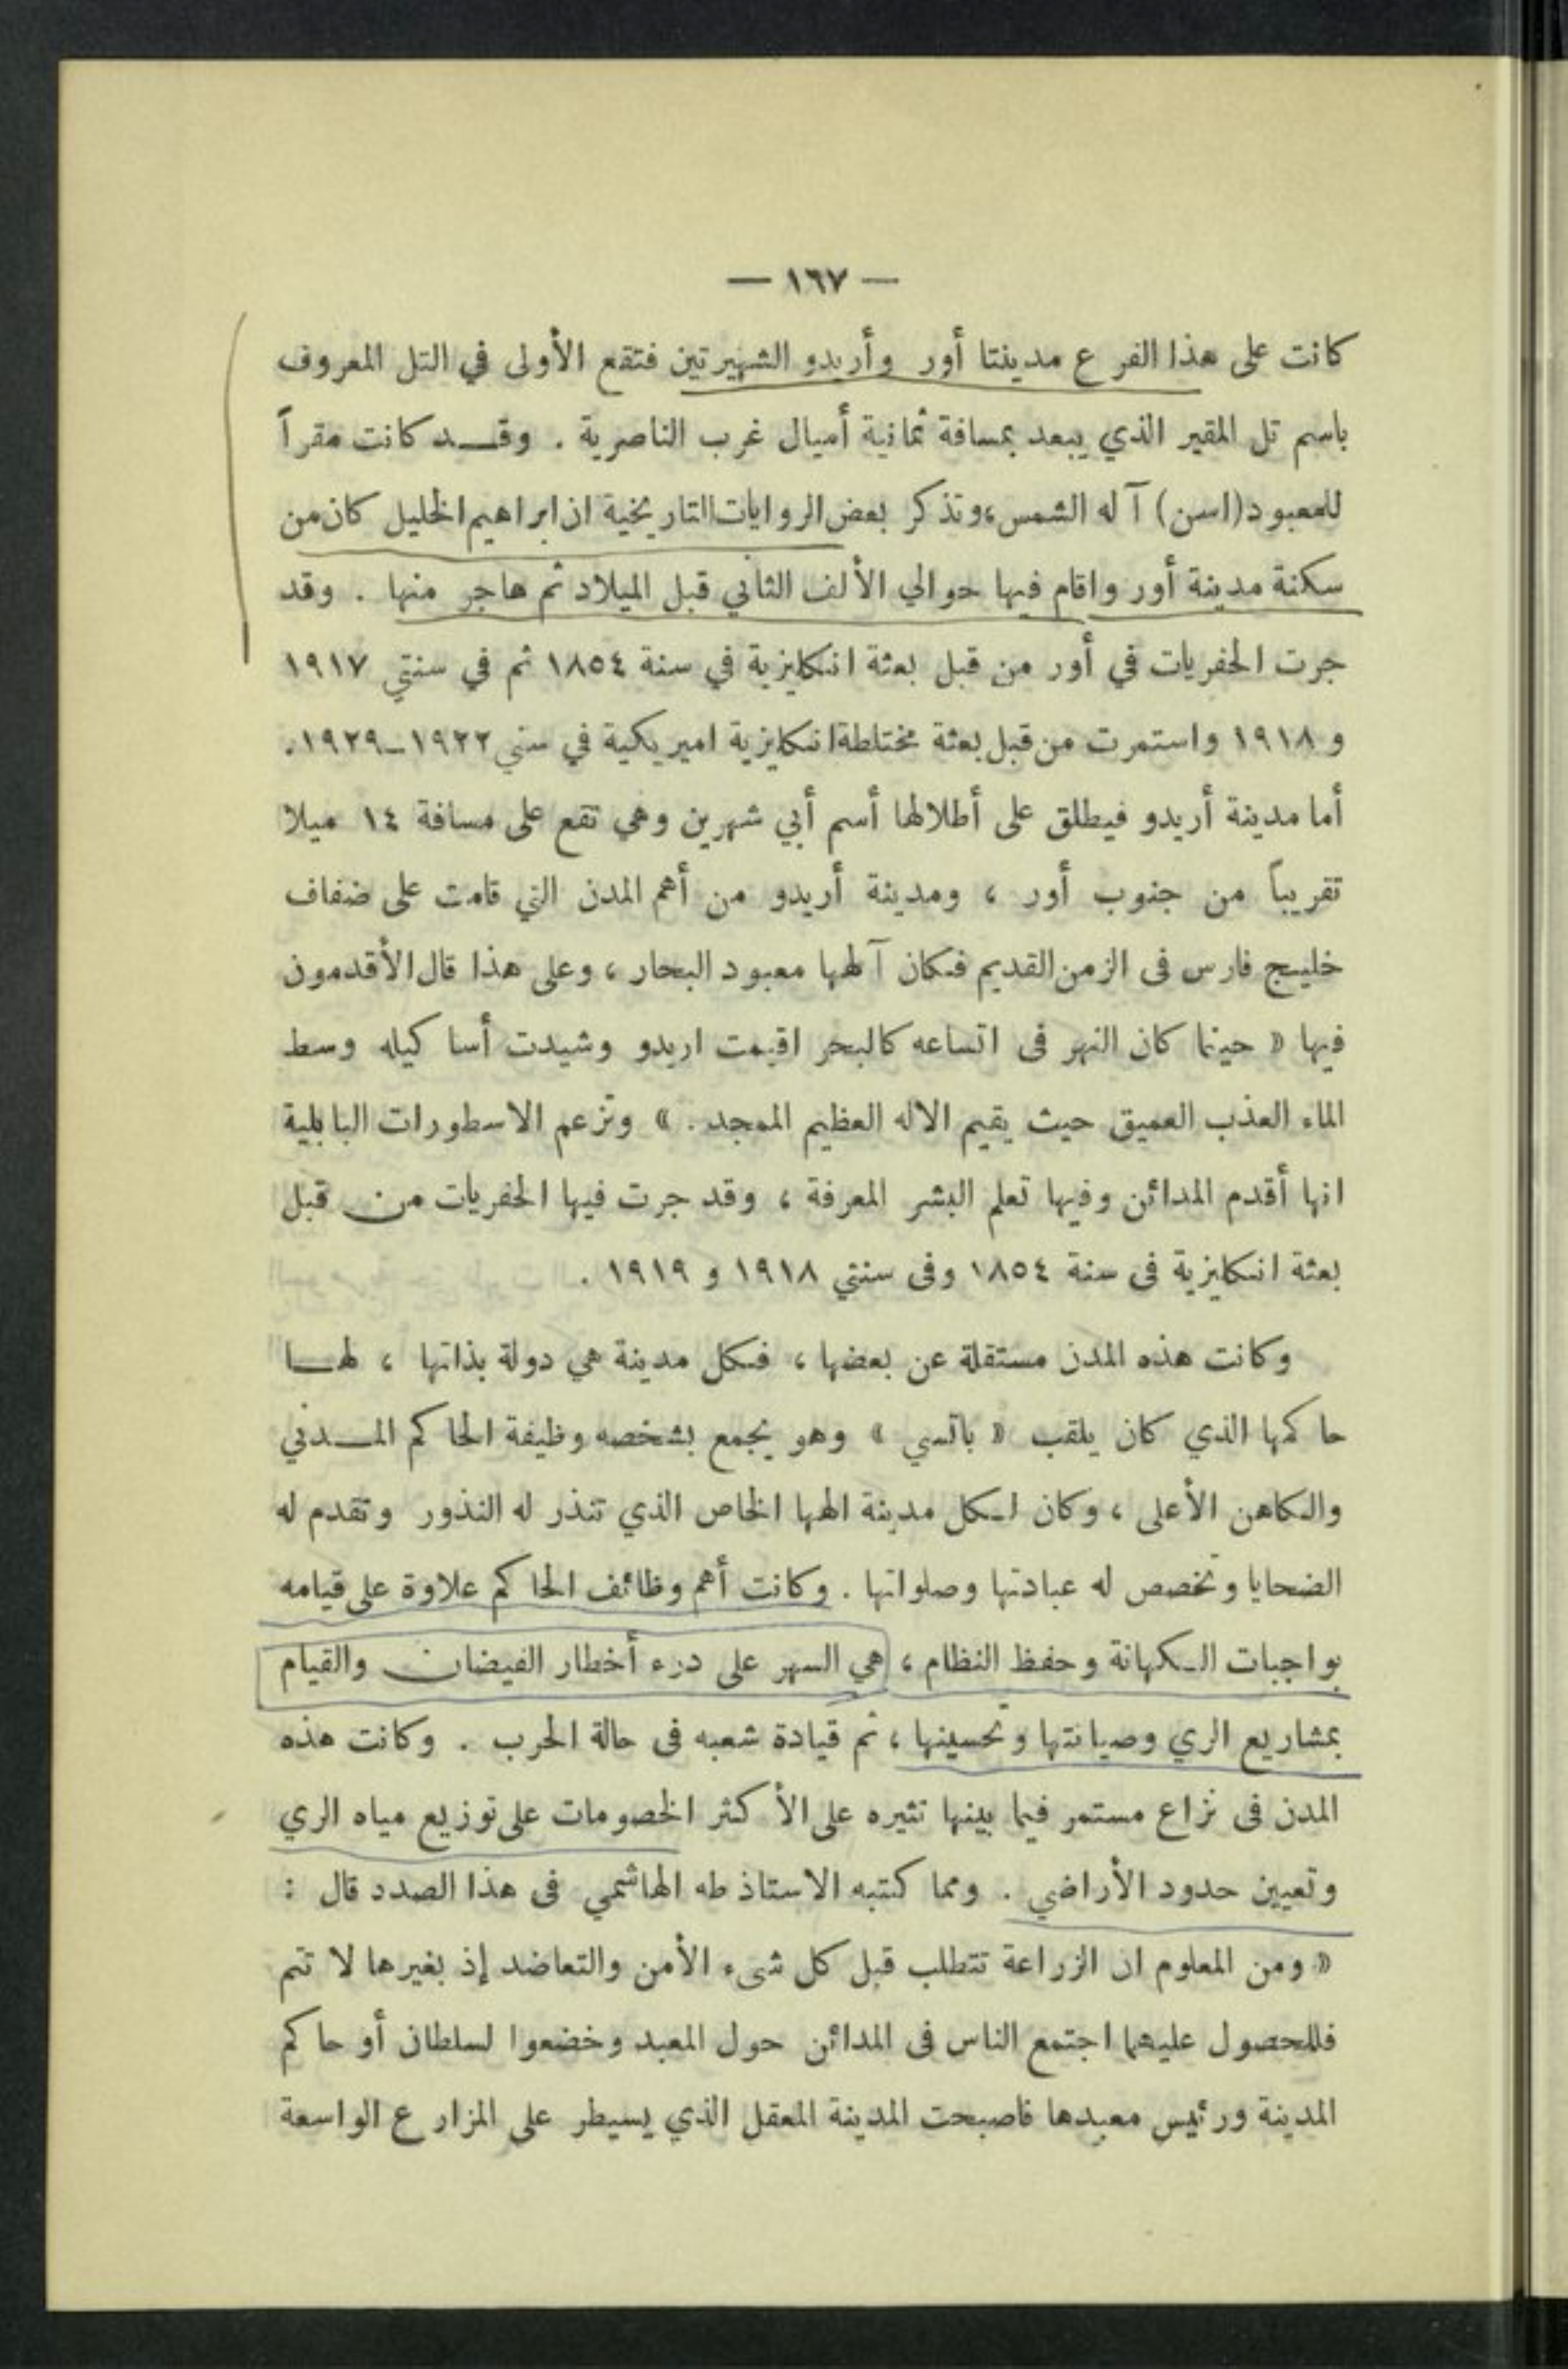 — ١٦٧ —
كانت على هذا الفرع مدينتا أور وأريدو الشهيرتين فتقع الأولى في التل المعروف
باسم تل المقير الذي يبعد بمسافة ثمانية أميال غرب الناصرية . وقد كانت مقراً
للمعبود (اسن) آله الشمس، وتذكر بعض الروايات التاريخية ان ابراهيم الخليل كان من
سكنة مدينة أور واقام فيها حوالي الألف الثاني قبل الميلاد ثم هاجر منها . وقد
جرت الحفريات في أور من قبل بعثة انكليزية في سنة ١٨٥٤ ثم في سنتي ١٩١٧
و ١٩١٨ واستمرت من قبل بعثة مختلطة انكليزية اميريكية في سني ١٩٢٢-١٩٢٩.
أما مدينة أريدو فيطلق على أطلالها أسم أبي شهرين وهي تقع على مسافة ١٤ ميلا
تقريباً من جنوب أور ، ومدينة أريدو من أهم المدن التي قامت على ضفاف
خليج فارس فى الزمن القديم فكان آلهها معبود البحار ، وعلى هذا قال الأقدمون
فيها « حينما كان النهر فى اتساعه كالبحر اقيمت اريدو وشيدت أساكيله وسط
الماء العذب العميق حيث يقيم الاله العظيم الممجد . » وتزعم الاسطورات البابلية
انها أقدم المدائن وفيها تعلم البشر المعرفة ، وقد جرت فيها الحفريات من قبل
بعثة انكليزية فى سنة ١٨٥٤ وفى سنتي ١٩١٨ و ١٩١٩ .
وكانت هذه المدن مستقلة عن بعضها ، فكل مدينة هي دولة بذاتها ، لها
حاكمها الذي كان يلقب « باتسي » وهو يجمع بشخصه وظيفة الحاكم المدني
والكاهن الأعلى ، وكان لكل مدينة الهها الخاص الذي تنذر له النذور وتقدم له
الضحايا وتخصص له عبادتها وصلواتها . وكانت أهم وظائف الحاكم علاوة على قيامه
بواجبات الكهانة وحفظ النظام ، هي السهر على درء أخطار الفيضان والقيام
بمشاريع الري وصيانتها وتحسينها ، ثم قيادة شعبه فى حالة الحرب . وكانت هذه
المدن فى نزاع مستمر فيما بينها تثيره على الأكثر الخصومات على توزيع مياه الري
وتعيين حدود الأراضي . ومما كتبه الاستاذ طه الهاشمي فى هذا الصدد قال :
« ومن المعلوم ان الزراعة تتطلب قبل كل شىء الأمن والتعاضد إذ بغيرها لا تتم
فللحصول عليهما اجتمع الناس فى المدائن حول المعبد وخضعوا لسلطان أو حاكم
المدينة ورئيس معبدها فاصبحت المدينة المعقل الذي يسيطر على المزارع الواسعة